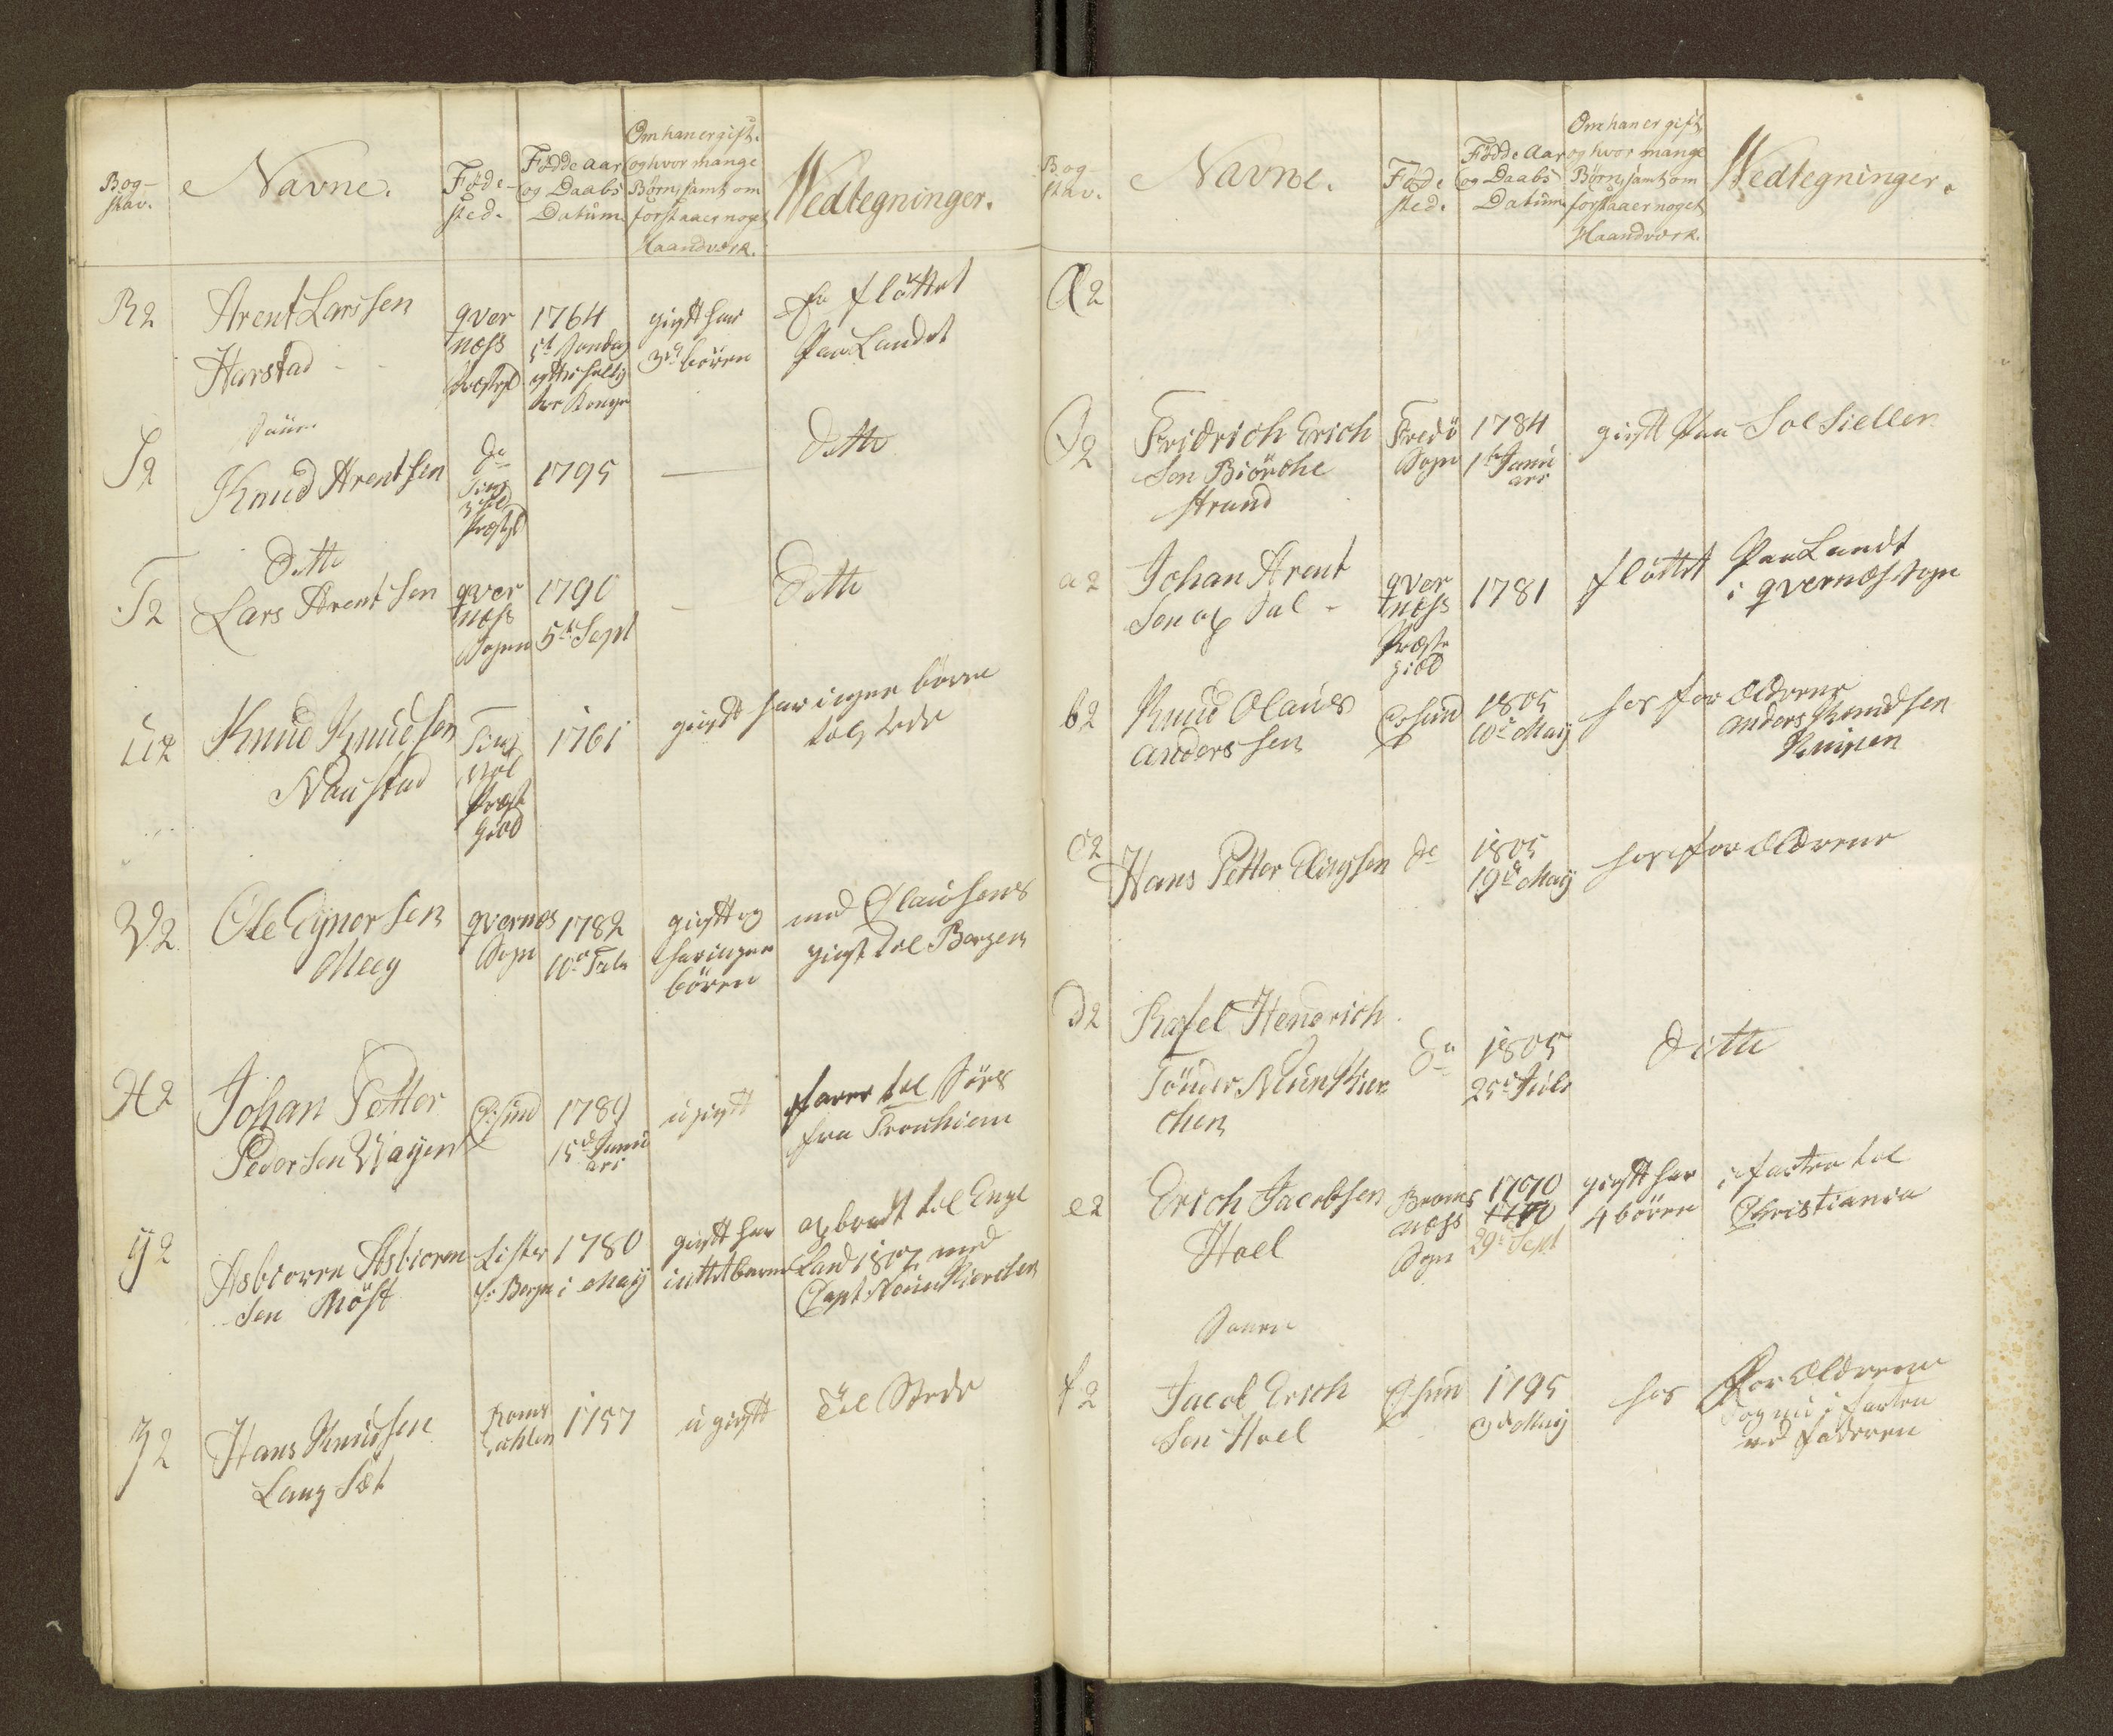 Bog-
stav.
Navne.
Føde-
sted.
Fødde aar
og Daabs
Datum
Om han er gift.
og hvor mange
Børn, samt om
forstaaer noget
Haandværk.
Vedtegninger.
R2
Arent Larssen
Harstad
qver
næss
1764
5t Søndag
gift har
3de børen
er fløttet
Paa Landet
S2
Søn
Knud Arentsen
do
1795
Ditto
T2
Ditto
Lars Arentsen
qver
næss
Sogen
1790
5te Sept
Ditto
U2
Knud Knudsen
Naustad
Ting
vol
Præste
giæld
1761
gift har ingen børn
til stede
V2
Ole Ejnersen
Meey
qvernæs
Sogn
1782
gift og
har ingen
børen
med Clausens
giegt til Bergen
X2
Johan Petter
Pedersen Vagen
Csund
1789
15de Janu
ari
ugift
farer til Søes
fra Tronhiem
Y2
Asbioren Asbioren
sen Møst
Lister
1780
i May
gift har
intet barn
opbragt til Enge
Land 1807 med
Capt
Z2
Hans Knudsen
Lang Sæt
Roms
dahlen
1757
ugift
Til Stede
Bog-
stav.
Navne.
Føde
sted.
Fødde Aar
og Daabs
Datum
Om han er gift,
og hvor mange
Børn, samt om
forstaaer noget
Haandværk.
Vedtegninger.
Æ2
Ø2
Fridrich Erich
Sen Biørche
strand
Fredø
Sogn
1784
1te Janu
ari
gift Paa Solsiellen
a2
Johan Arent
Sen af Dal
qver
næss
Præste
giæld
1781
fløttet Paa Landt
i qvernæs Sogn
b2
Knud Olaus
anderssen
Csund
1805
10de May
hos forældrene
anders Knudsen
c2
Hans Petter Elingsen
do
1805
19de May
hos forældrene
d2
Rafel Hendrich
Tønder
chen
do
1805
25de Juli
ditto
e2
Erich Jacobsen
Hoel
Brems
næss
Sogn
1770
1770
29de Sept
gift har
4 børen
i farten til
Christiania
f2
Sønen
Jacob Erich
Sen Hoel
Csun
1795
3de May
hos Forældrene
og nu i farten
ved faderen